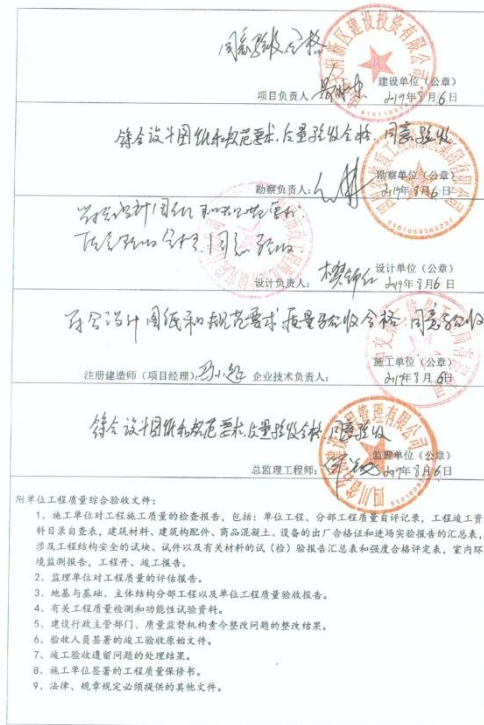 同意验收合格
建设单位（公章）
项目负责人： 2019年8月6日
符合设计图纸和规范要求，质量验收合格，同意验收
勘察单位（公章）
勘察负责人： 2019年8月6日
设计单位（公章）
设计负责人： 2019年8月6日
符合设计图纸和规范要求 质量验收合格 同意验收
施工单位（公章）
注册建造师（项目经理）： 企业技术负责人： 2019年8月6日
符合设计图纸和规范要求，质量验收合格，同意验收
监理单位（公章）
总监理工程师： 2019年8月6日
附单位工程质量综合验收文件：
1、施工单位对工程施工质量的检查报告，包括：单位工程、分部工程质量自评记录，工程竣工资
料目录自查表，建筑材料、建筑构配件、商品混凝土、设备的出厂合格证和进场实验报告的汇总表，
涉及工程结构安全的试块、试件以及有关材料的试（检）验报告汇总表和强度合格评定表，室内环
境监测报告，工程开、竣工报告。
2、监理单位对工程质量的评估报告。
3、地基与基础、主体结构分部工程以及单位工程质量验收报告。
4、有关工程质量检测和功能性试验资料。
5、建设行政主管部门、质量监督机构责令整改问题的整改结果。
6、验收人员签署的竣工验收原始文件。
7、竣工验收遗留问题的处理结果。
8、施工单位签署的工程质量保修书。
9、法律、规章规定必须提供的其他文件。